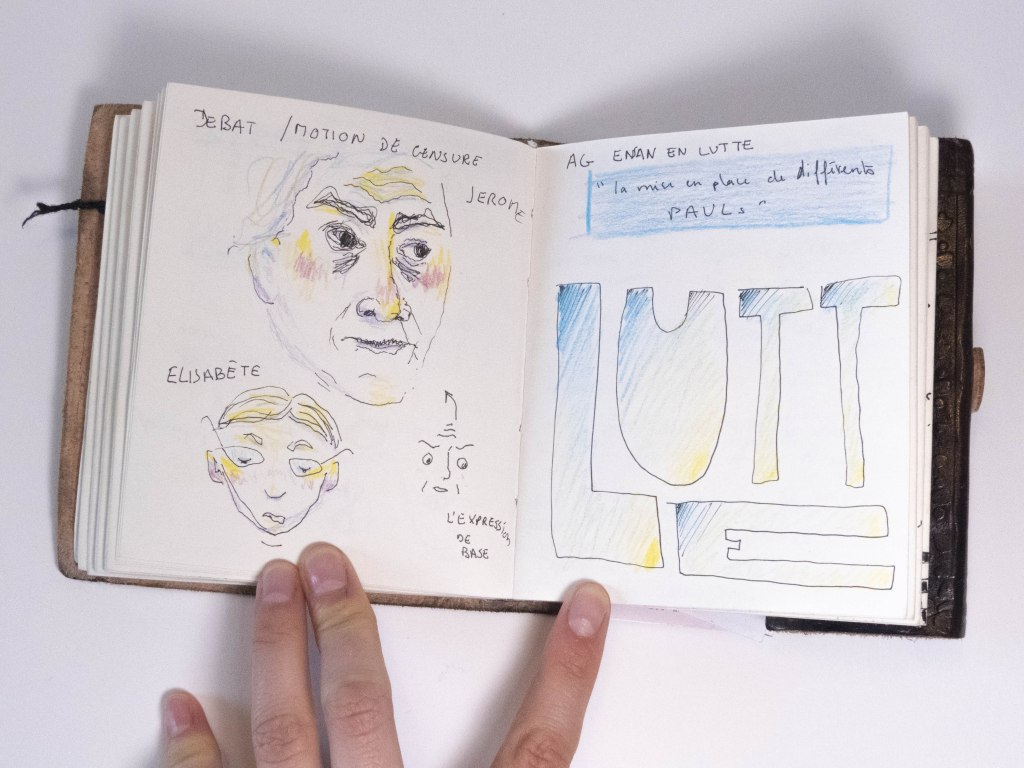 DEBAT / MOTION DE CENSURE
JEROME
ELISABÈTE
L'EXPRESSION
DE
BASE
AG ENAN EN LUTTE
"la mise en place de différents
PAULs"
LUTT
E